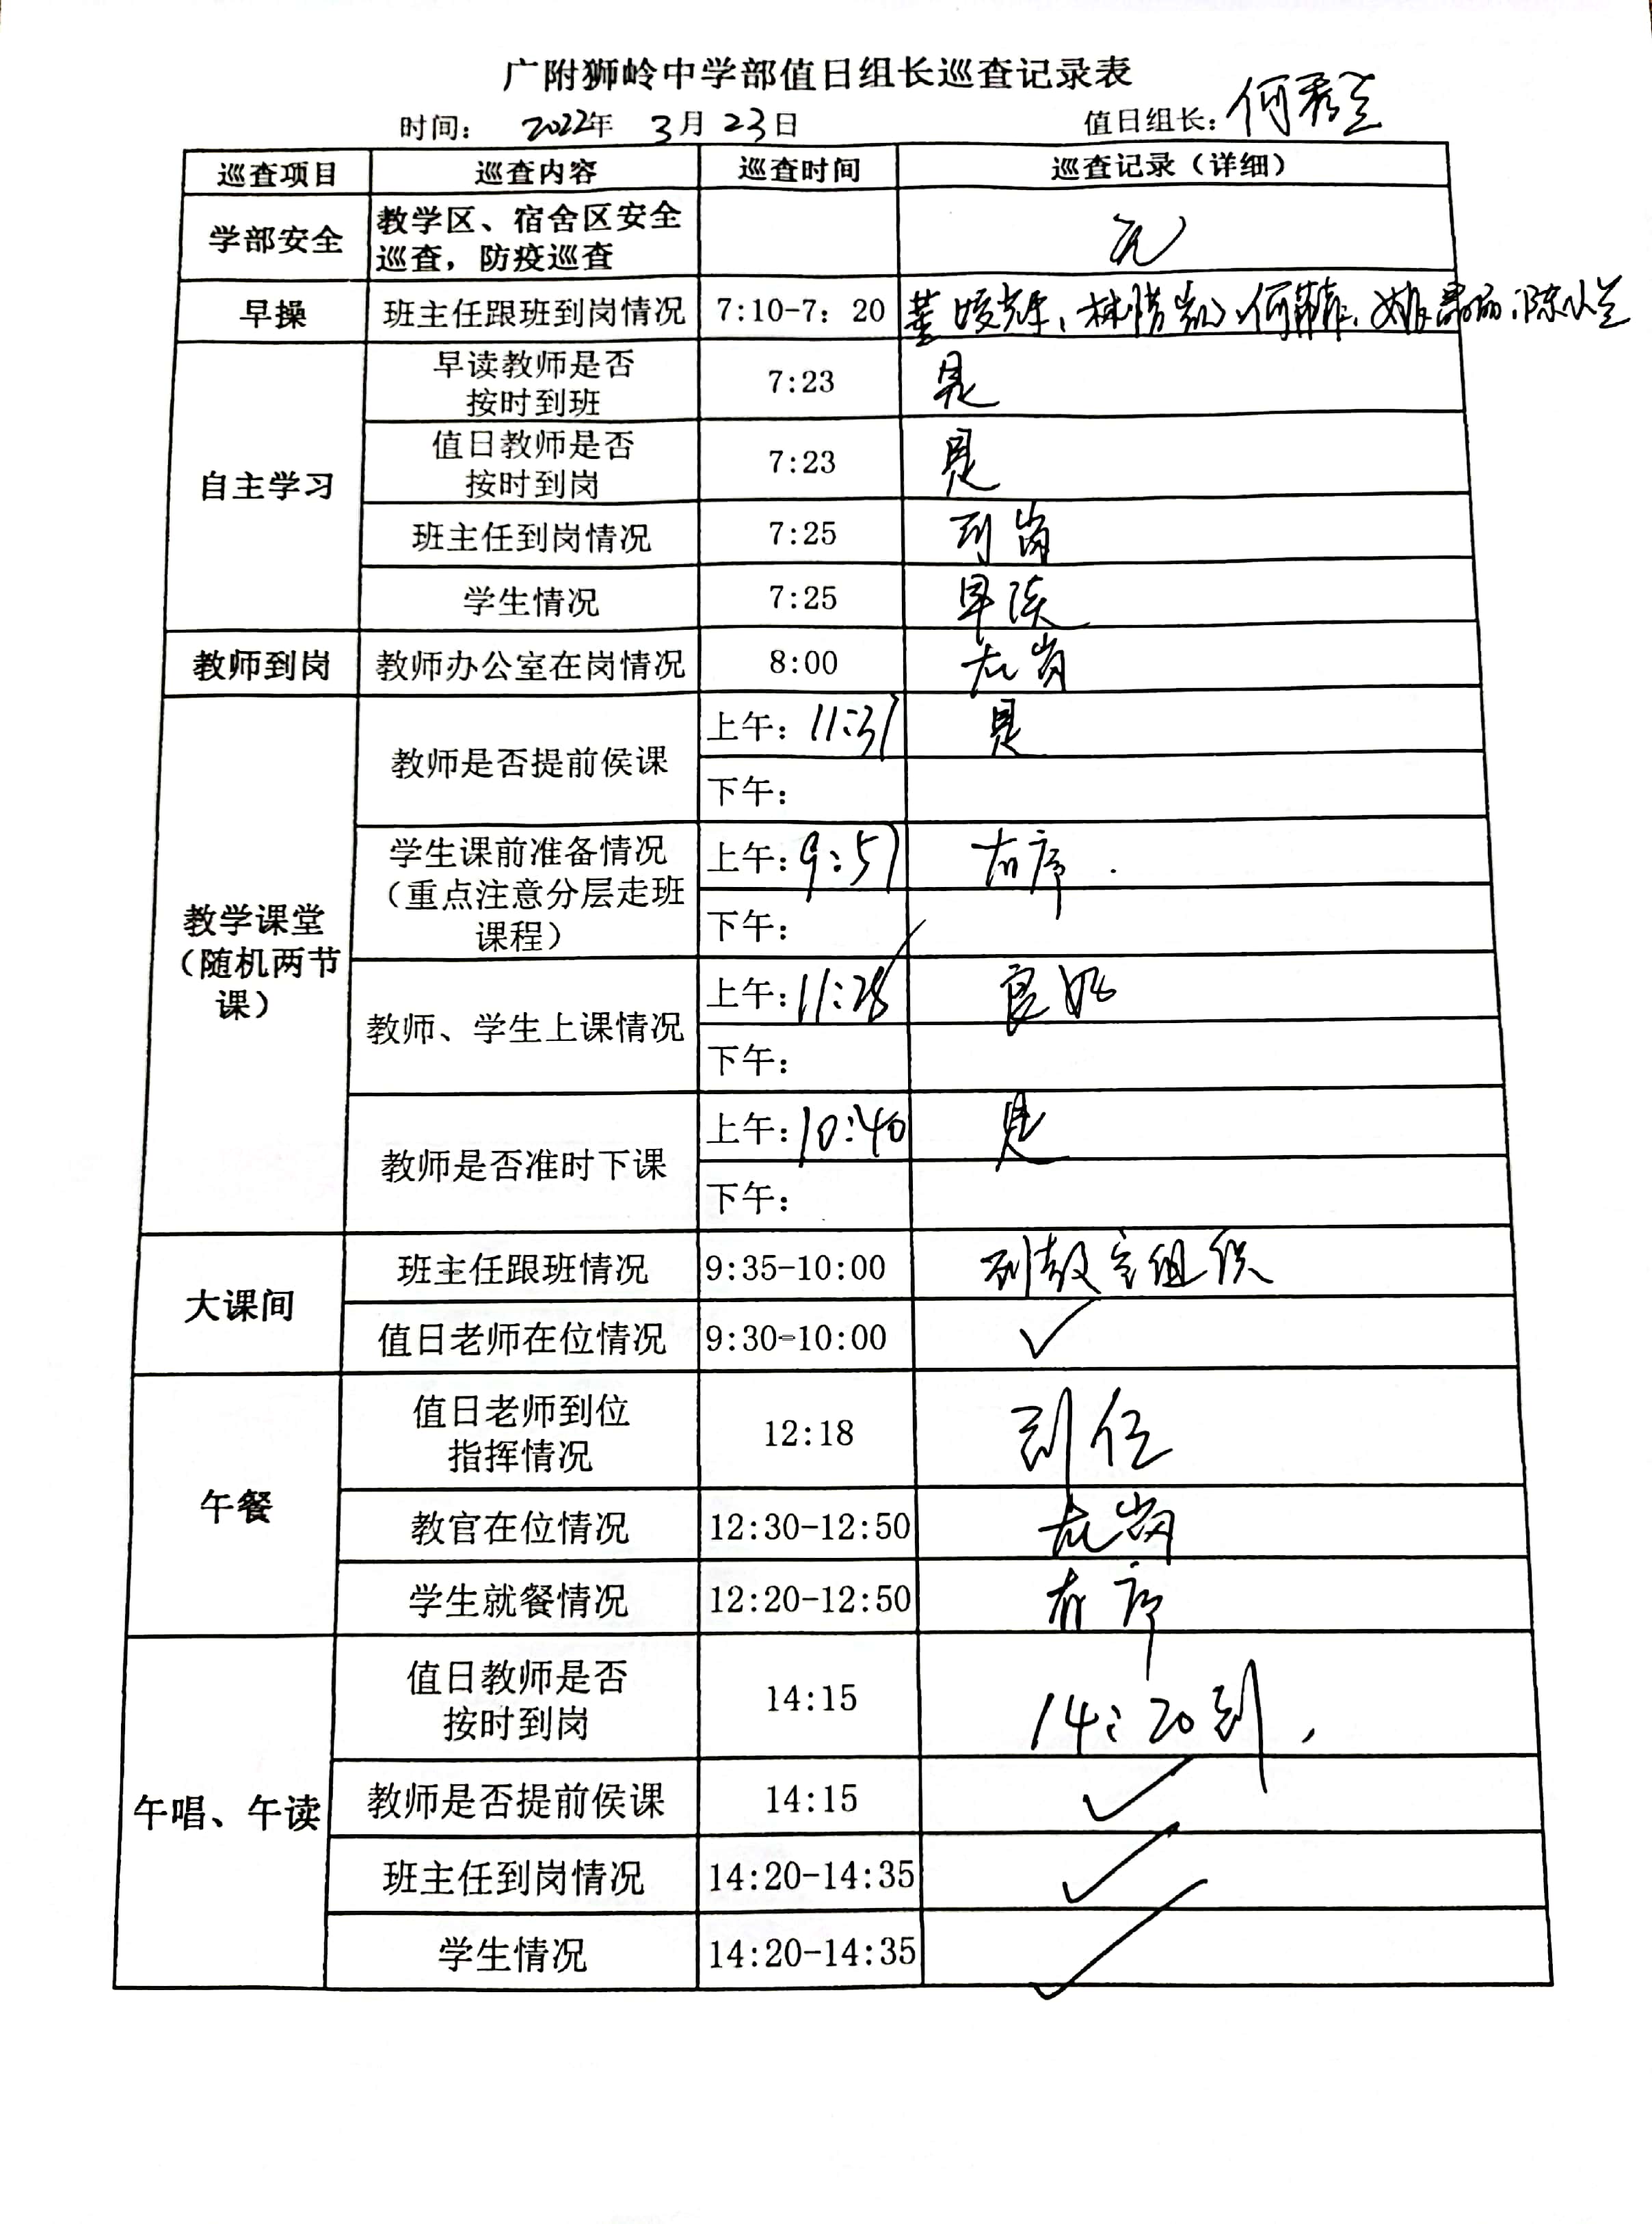 广附狮岭中学部值日组长巡查记录表
时间： 2022年 3月23日 值日组长：何秀兰
巡查项目 巡查内容 巡查时间 巡查记录（详细）
学部安全 教学区、宿舍区安全
巡查，防疫巡查 无
早操 班主任跟班到岗情况 7:10-7：20 、何菲菲、陈小兰
早读教师是否
按时到班 7:23 是
值日教师是否
按时到岗 7:23 是
自主学习
班主任到岗情况 7:25 到岗
学生情况 7:25 早读
教师到岗 教师办公室在岗情况 8:00 在岗
教师是否提前侯课 上午：11:31 是
下午：
学生课前准备情况
（重点注意分层走班
课程） 上午：9:57 有序.
下午：
教学课堂
（随机两节
课）
教师、学生上课情况 上午：11:28 良好
下午：
教师是否准时下课 上午：10:40 是
下午：
大课间
班主任跟班情况 9:35-10:00 到教室组织
值日老师在位情况 9:30-10:00 ✓
午餐
值日老师到位
指挥情况 12:18 到位
教官在位情况 12:30-12:50 在岗
学生就餐情况 12:20-12:50 有序
午唱、午读
值日教师是否
按时到岗 14:15 14:20到,
教师是否提前侯课 14:15 ✓
班主任到岗情况 14:20-14:35 ✓
学生情况 14:20-14:35 ✓